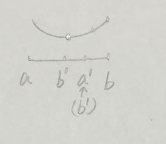 a b' a' b
(b')